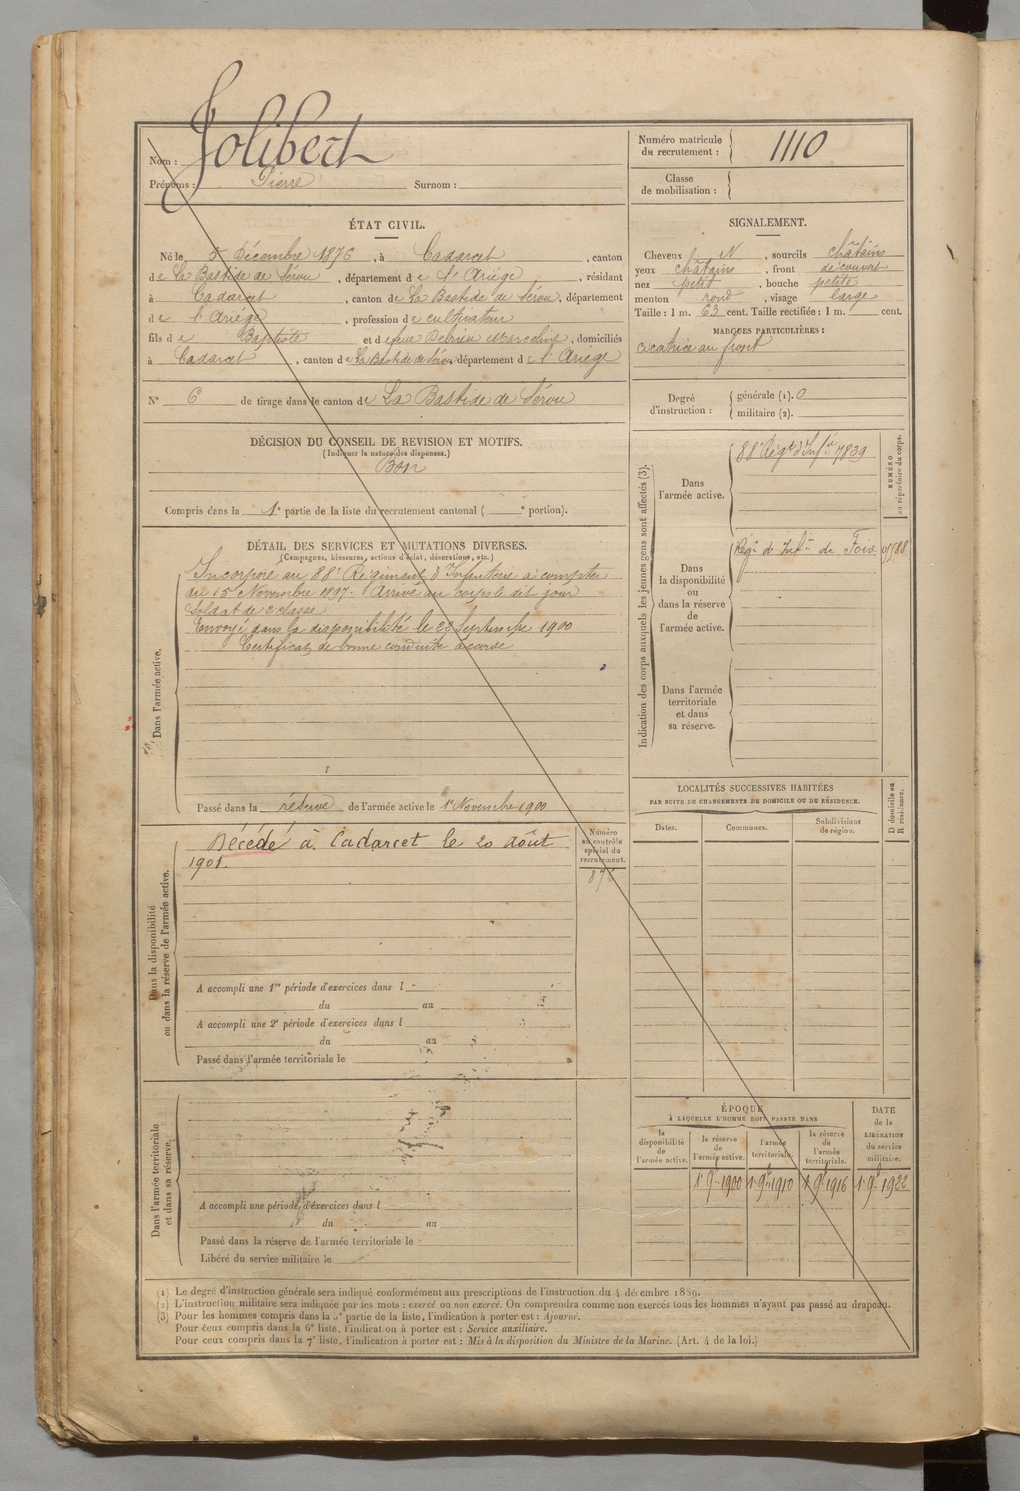 Nom : Jolibert
Prénoms : Pierre Surnom :
Numéro matricule du recrutement : 1110
Classe de mobilisation :
ÉTAT CIVIL.
Né le 5 Décembre 1876, à Cadarcet, canton
de La Bastide de Sérou, département de l'Ariége, résidant
à Cadarcet, canton de La Bastide de Sérou, département
de l'Ariége, profession de cultivateur
fils de Baptiste et de feue Marceline, domiciliés
à Cadarcet, canton de La Bastide de Sérou, département de l'Ariége
N° 6 de tirage dans le canton de La Bastide de Sérou
SIGNALEMENT.
Cheveux N, sourcils châtains
yeux châtains, front découvert
nez petit, bouche petite
menton rond, visage large
Taille : 1 m. 63 cent. Taille rectifiée : 1 m. cent.
MARQUES PARTICULIÈRES :
cicatrice au front
Degré d'instruction : générale (1). 0
militaire (2).
DÉCISION DU CONSEIL DE REVISION ET MOTIFS.
(Indiquer la nature des dispenses.)
Bon
Compris dans la 1e partie de la liste du recrutement cantonal ( e portion).
DÉTAIL DES SERVICES ET MUTATIONS DIVERSES.
(Campagnes, blessures, actions d'éclat, décorations, etc.)
Dans l'armée active.
Incorporé au 88e Régiment d'Infanterie à compter
du 15 Novembre 1897. Arrivé au corps le dit jour
Soldat de 2e classe
Envoyé dans la disponibilité le 23 Septembre 1900
Certificat de bonne conduite accordé
Passé dans la réserve de l'armée active le 1er Novembre 1900
Indication des corps auxquels les jeunes gens sont affectés (3).
NUMÉRO au répertoire du corps.
Dans l'armée active.
88e Régt d'Infie 7839
Dans la disponibilité ou dans la réserve de l'armée active.
Régt d'Infie de Foix
Dans l'armée territoriale et dans sa réserve.
LOCALITÉS SUCCESSIVES HABITÉES
PAR SUITE DE CHANGEMENTS DE DOMICILE OU DE RÉSIDENCE.
Dates. Communes. Subdivisions de région.
D domicile ou R résidence.
Dans la disponibilité ou dans la réserve de l'armée active.
Numéro au contrôle spécial du recrutement.
Décédé à Cadarcet le 20 août
1901.
A accompli une 1re période d'exercices dans l
du au
A accompli une 2e période d'exercices dans l
du au
Passé dans l'armée territoriale le
Dans l'armée territoriale et dans sa réserve.
A accompli une période d'exercices dans l
du au
Passé dans la réserve de l'armée territoriale le
Libéré du service militaire le
ÉPOQUE
À LAQUELLE L'HOMME DOIT PASSER DANS
la disponibilité de l'armée active.
la réserve de l'armée active.
l'armée territoriale.
la réserve de l'armée territoriale.
DATE de la LIBÉRATION du service militaire.
1er 9bre 1900 1er 9bre 1910 1er 9bre 1916 1er 9bre 1922
(1) Le degré d'instruction générale sera indiqué conformément aux prescriptions de l'instruction du 4 décembre 1889.
(2) L'instruction militaire sera indiquée par les mots : exercé ou non exercé. On comprendra comme non exercés tous les hommes n'ayant pas passé au drapeau.
(3) Pour les hommes compris dans la 5e partie de la liste, l'indication à porter est : Ajourné.
Pour ceux compris dans la 6e liste, l'indication à porter est : Service auxiliaire.
Pour ceux compris dans la 7e liste, l'indication à porter est : Mis à la disposition du Ministre de la Marine. (Art. 4 de la loi.)